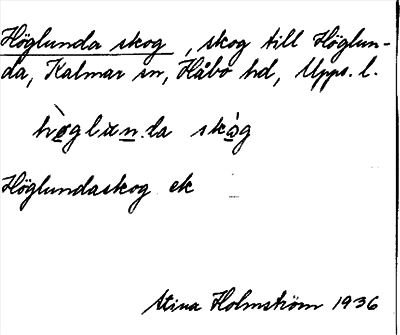 Höglunda skog, skog till Höglun-
da, Kalmar sn, Håbo hd, Upps. l.
hö̀glun.da skóg
Höglundaskog ek
Stina Holmström 1936